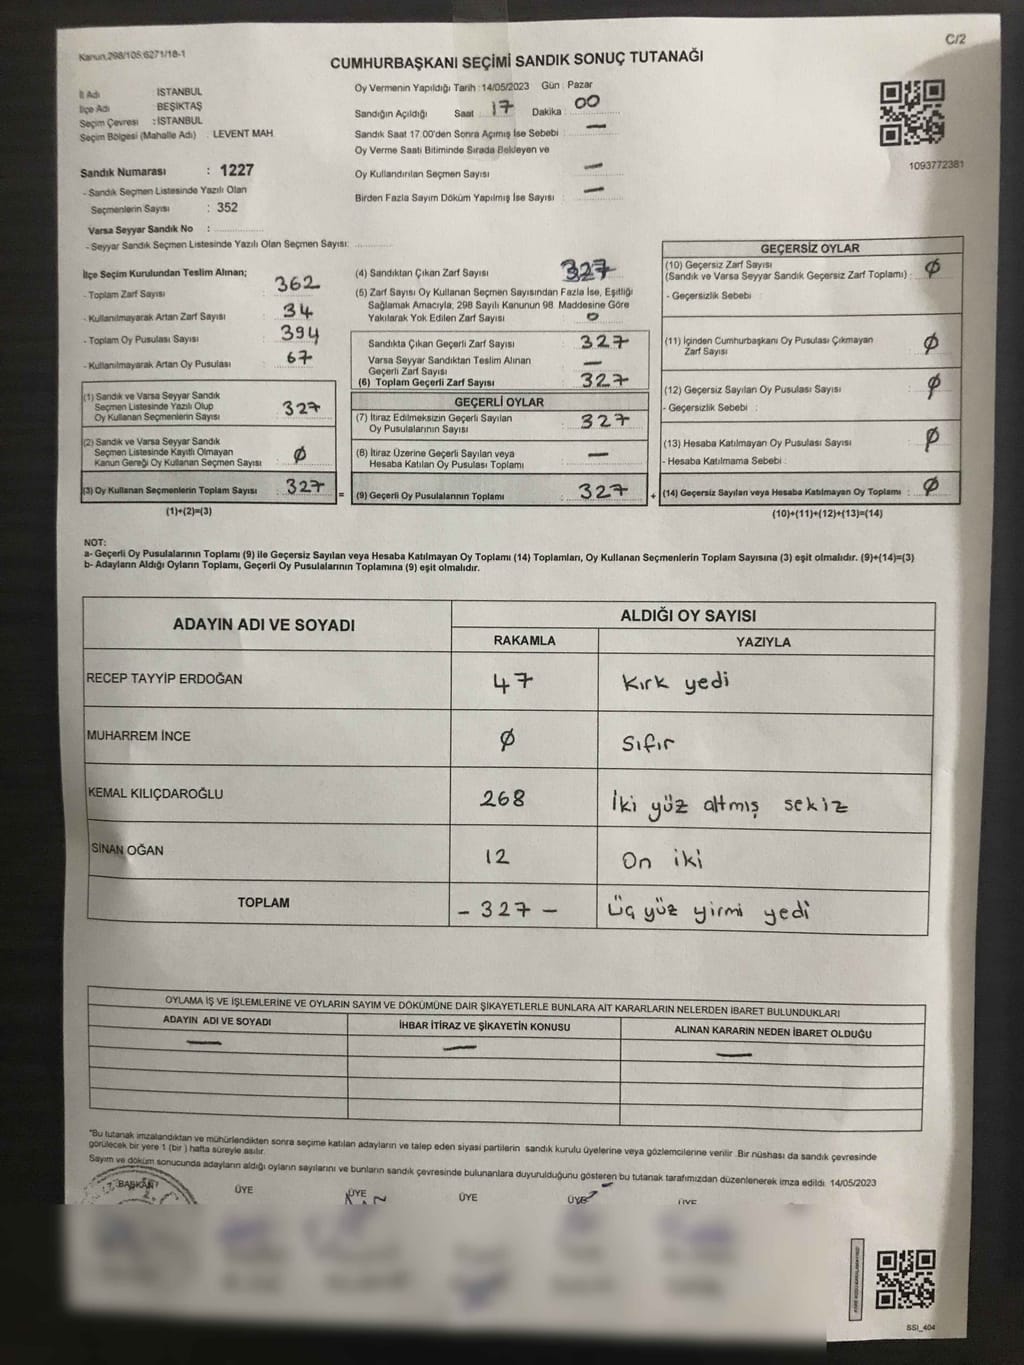 Kanun.298/105.6271/18-1
C/2
CUMHURBAŞKANI SEÇİMİ SANDIK SONUÇ TUTANAĞI
İl Adı İSTANBUL
İlçe Adı BEŞİKTAŞ
Seçim Çevresi : İSTANBUL
Seçim Bölgesi (Mahalle Adı) : LEVENT MAH.
Sandık Numarası : 1227
- Sandık Seçmen Listesinde Yazılı Olan
Seçmenlerin Sayısı : 352
Varsa Seyyar Sandık No :
- Seyyar Sandık Seçmen Listesinde Yazılı Olan Seçmen Sayısı:
Oy Vermenin Yapıldığı Tarih : 14/05/2023 Gün : Pazar
Sandığın Açıldığı Saat 17 Dakika 00
Sandık Saat 17.00'den Sonra Açımış İse Sebebi : —
Oy Verme Saati Bitiminde Sırada Bekleyen ve
Oy Kullandırılan Seçmen Sayısı —
Birden Fazla Sayım Döküm Yapılmış İse Sayısı : —
1093772381
İlçe Seçim Kurulundan Teslim Alınan;
- Toplam Zarf Sayısı 362
- Kullanılmayarak Artan Zarf Sayısı 34
- Toplam Oy Pusulası Sayısı 394
- Kullanılmayarak Artan Oy Pusulası 67
(1) Sandık ve Varsa Seyyar Sandık
Seçmen Listesinde Yazılı Olup
Oy Kullanan Seçmenlerin Sayısı 327
(2) Sandık ve Varsa Seyyar Sandık
Seçmen Listesinde Kayıtlı Olmayan
Kanun Gereği Oy Kullanan Seçmen Sayısı Ø
(3) Oy Kullanan Seçmenlerin Toplam Sayısı 327
(1)+(2)=(3)
=
(4) Sandıktan Çıkan Zarf Sayısı 327
(5) Zarf Sayısı Oy Kullanan Seçmen Sayısından Fazla İse, Eşitliği
Sağlamak Amacıyla, 298 Sayılı Kanunun 98. Maddesine Göre
Yakılarak Yok Edilen Zarf Sayısı 0
Sandıkta Çıkan Geçerli Zarf Sayısı 327
Varsa Seyyar Sandıktan Teslim Alınan
Geçerli Zarf Sayısı —
(6) Toplam Geçerli Zarf Sayısı 327
GEÇERLİ OYLAR
(7) İtiraz Edilmeksizin Geçerli Sayılan
Oy Pusulalarının Sayısı 327
(8) İtiraz Üzerine Geçerli Sayılan veya
Hesaba Katılan Oy Pusulası Toplamı —
(9) Geçerli Oy Pusulalarının Toplamı 327
+
GEÇERSİZ OYLAR
(10) Geçersiz Zarf Sayısı
(Sandık ve Varsa Seyyar Sandık Geçersiz Zarf Toplamı) : Ø
- Geçersizlik Sebebi :
(11) İçinden Cumhurbaşkanı Oy Pusulası Çıkmayan
Zarf Sayısı Ø
(12) Geçersiz Sayılan Oy Pusulası Sayısı : Ø
- Geçersizlik Sebebi :
(13) Hesaba Katılmayan Oy Pusulası Sayısı Ø
- Hesaba Katılmama Sebebi :
(14) Geçersiz Sayılan veya Hesaba Katılmayan Oy Toplamı : Ø
(10)+(11)+(12)+(13)=(14)
NOT:
a- Geçerli Oy Pusulalarının Toplamı (9) ile Geçersiz Sayılan veya Hesaba Katılmayan Oy Toplamı (14) Toplamları, Oy Kullanan Seçmenlerin Toplam Sayısına (3) eşit olmalıdır. (9)+(14)=(3)
b- Adayların Aldığı Oyların Toplamı, Geçerli Oy Pusulalarının Toplamına (9) eşit olmalıdır.
ADAYIN ADI VE SOYADI ALDIĞI OY SAYISI
RAKAMLA YAZIYLA
RECEP TAYYİP ERDOĞAN 47 Kırk yedi
MUHARREM İNCE Ø Sıfır
KEMAL KILIÇDAROĞLU 268 İki yüz altmış sekiz
SİNAN OĞAN 12 On iki
TOPLAM - 327 - Üç yüz yirmi yedi
OYLAMA İŞ VE İŞLEMLERİNE VE OYLARIN SAYIM VE DÖKÜMÜNE DAİR ŞİKAYETLERLE BUNLARA AİT KARARLARIN NELERDEN İBARET BULUNDUKLARI
ADAYIN ADI VE SOYADI İHBAR İTİRAZ VE ŞİKAYETİN KONUSU ALINAN KARARIN NEDEN İBARET OLDUĞU
— — —
*Bu tutanak imzalandıktan ve mühürlendikten sonra seçime katılan adayların ve talep eden siyasi partilerin sandık kurulu üyelerine veya gözlemcilerine verilir. Bir nüshası da sandık çevresinde
görülecek bir yere 1 (bir) hafta süreyle asılır.
Sayım ve döküm sonucunda adayların aldığı oyların sayılarını ve bunların sandık çevresinde bulunanlara duyurulduğunu gösteren bu tutanak tarafımızdan düzenlenerek imza edildi. 14/05/2023
BAŞKAN ÜYE ÜYE ÜYE ÜYE ÜYE
SSI_404